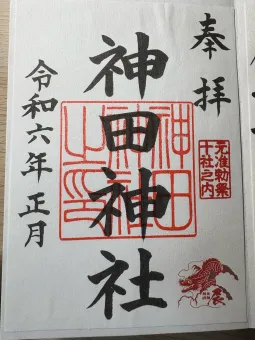 奉拝
元准勅祭
十社之内
神田神社
令和六年正月
辰